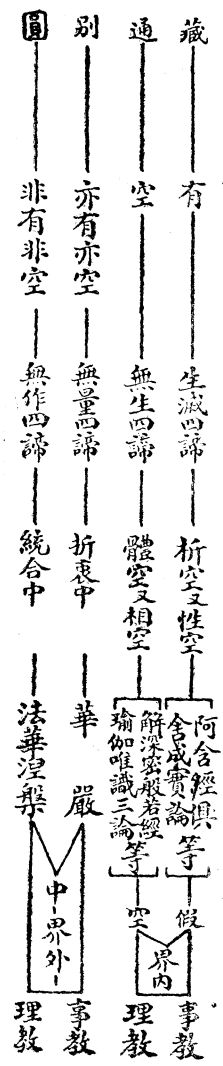 藏
有
生滅四諦
析空又性空
阿含經俱
舍成實論
等
假
事教
通
空
無生四諦
體空又相空
解深密般若經
瑜伽唯識三論
等
空
理教
界内
别
亦有亦空
無量四諦
折衷中
華嚴
事教
圓
非有非空
無作四諦
統合中
法華涅槃
理教
中
界外